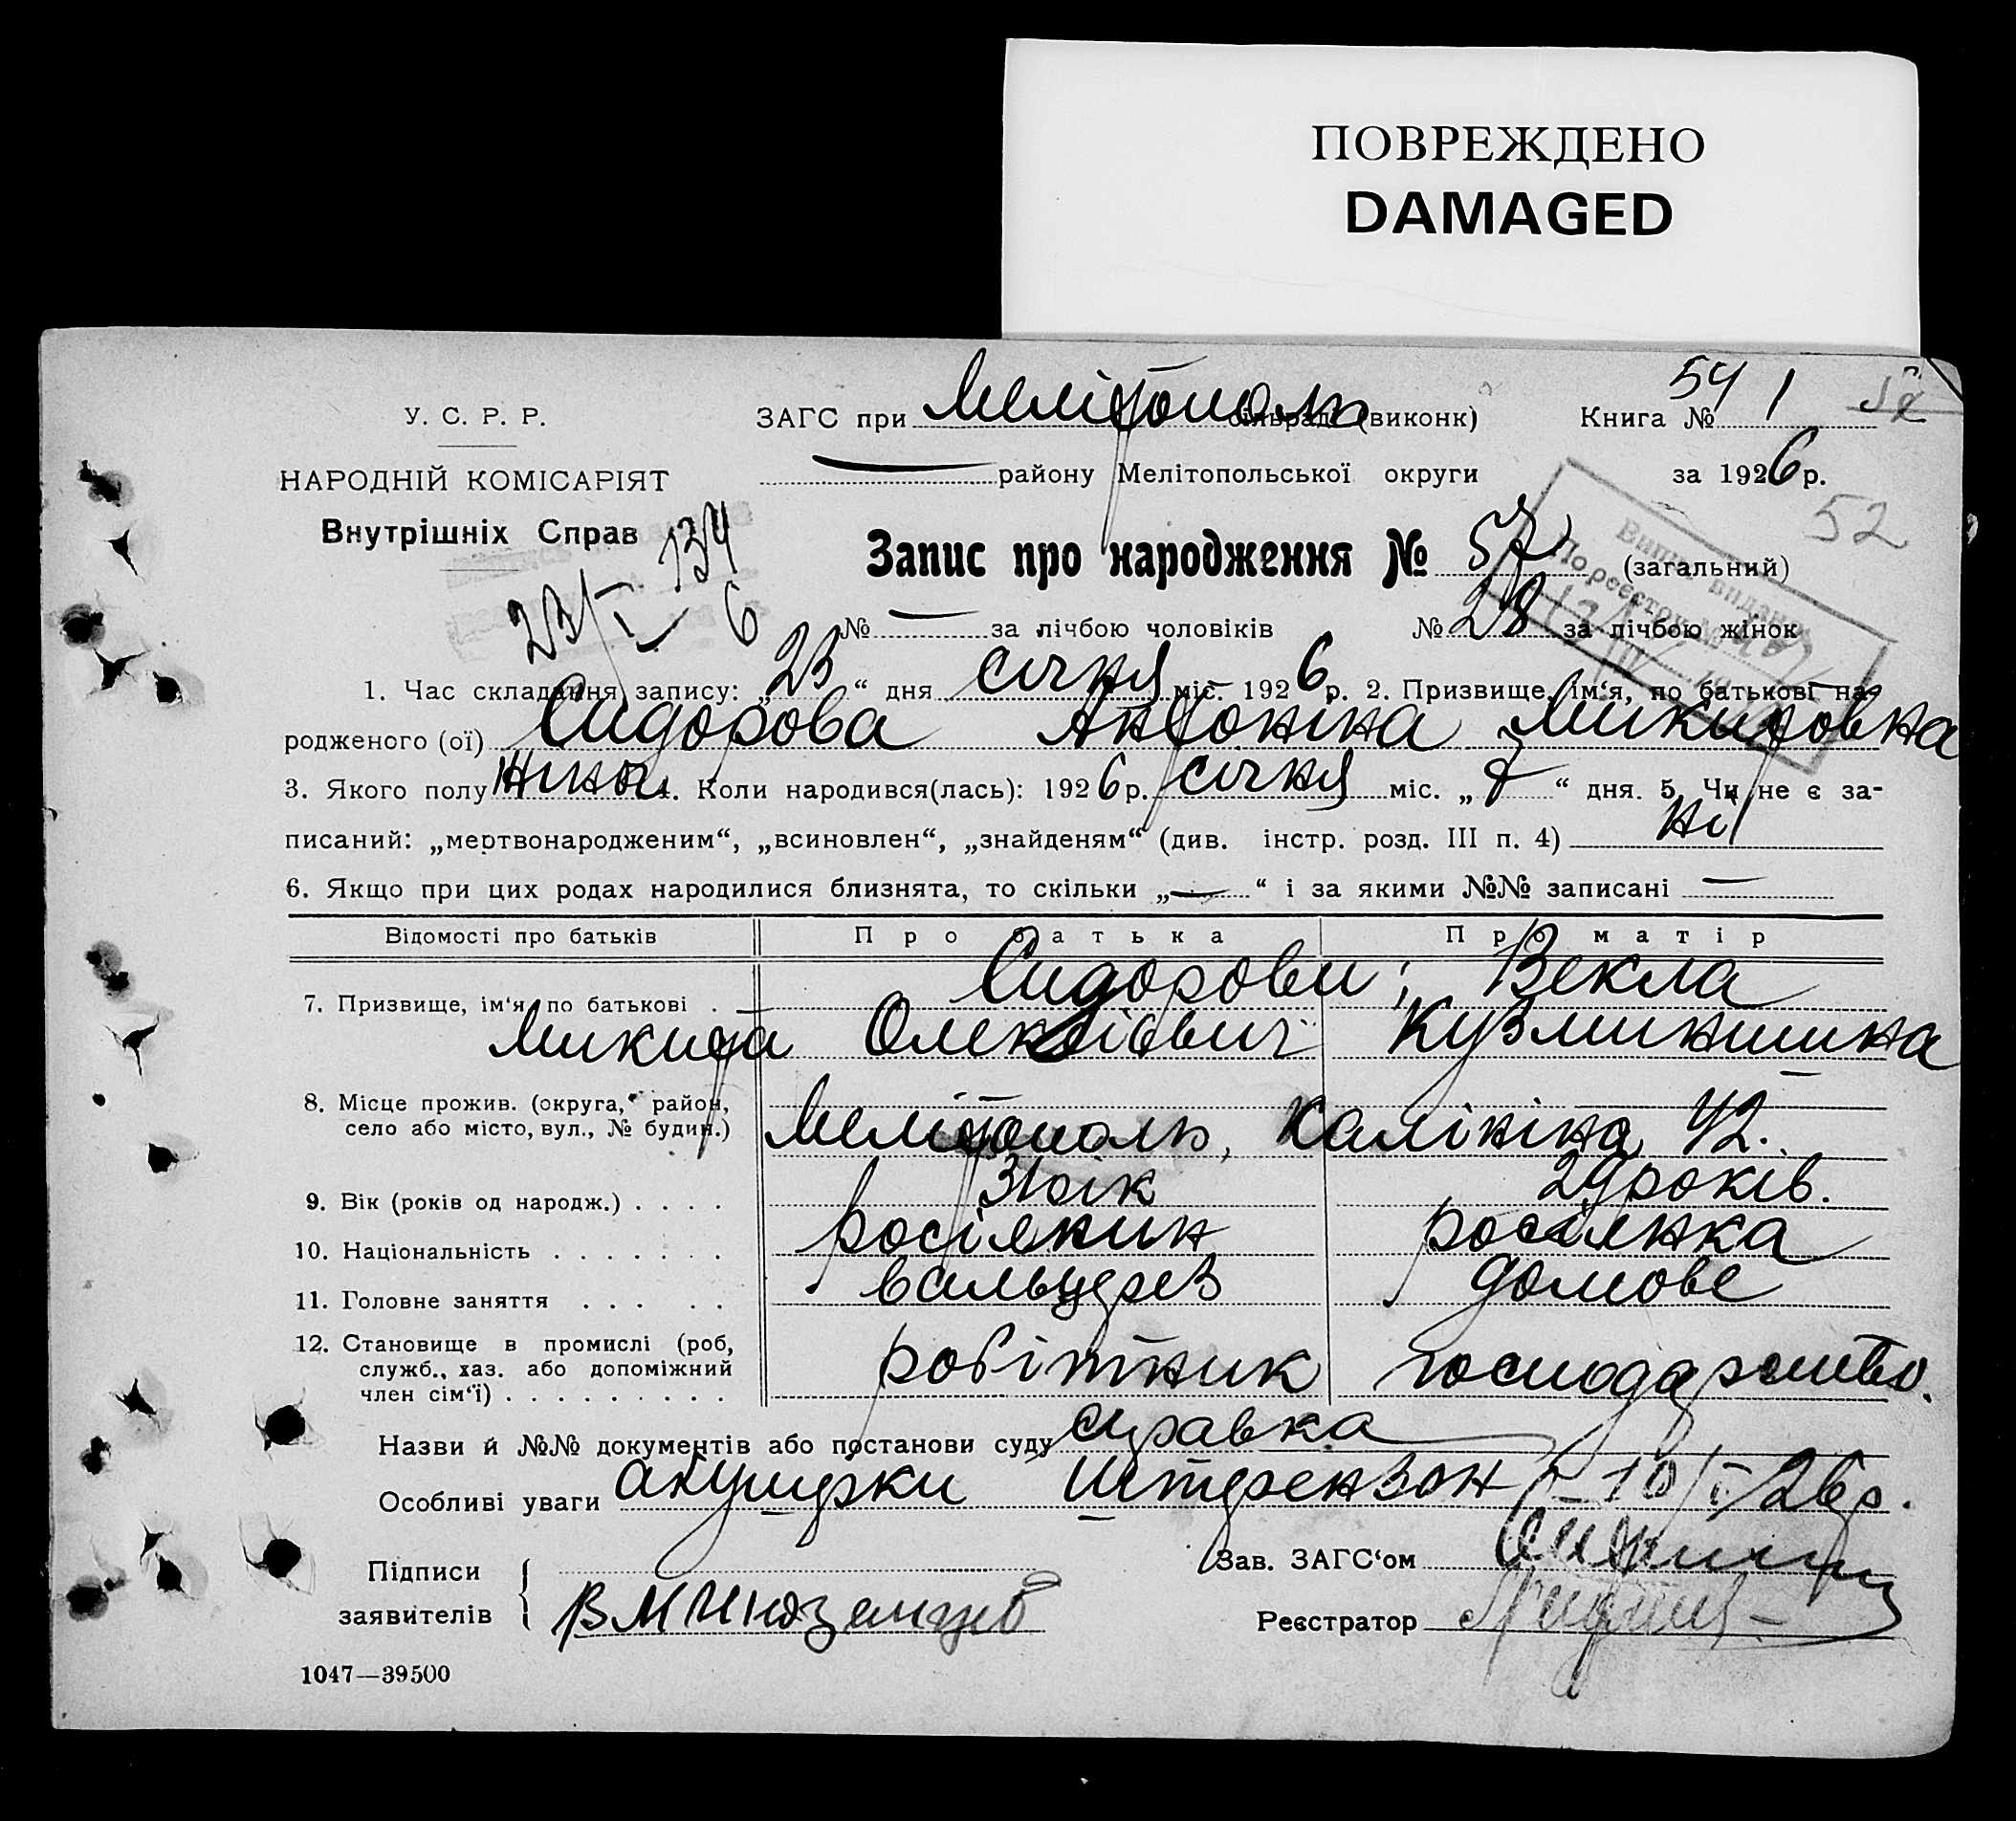 ПОВРЕЖДЕНО
DAMAGED
У. С. Р. Р.
НАРОДНІЙ КОМІСАРІЯТ
Внутрішніх Справ
23/I 134 6
ЗАГС при Мелітополь сільраді (виконк)
Книга № 54 1 52
— району Мелітопольської округи
за 1926 р.
52
Запис про народження № 57 (загальний)
№ — за лічбою чоловіків № 28 за лічбою жінок
1. Час складання запису: „23“ дня січня міс. 1926 р. 2. Призвище, ім‘я, по батькові на-
родженого (ої) Сидорова Антоніна Микитовна
3. Якого полу жіноч. 4. Коли народився(лась): 1926 р. січня міс. „7“ дня. 5. Чи не є за-
писаний: „мертвонародженим“, „всиновлен“, „знайденям“ (див. інстр. розд. III п. 4) ні
6. Якщо при цих родах народилися близнята, то скільки „—“ і за якими №№ записані —
Відомості про батьків Про батька Про матір
7. Призвище, ім‘я, по батькові . Сидорови; Векла
Микита Олексієвич Кузминишна
8. Місце прожив. (округа, район,
село або місто, вул., № будин.) Мелітополь, Калініна 42.
9. Вік (років од народж.) . . . . 31 рік 29 років.
10. Національність . . . . . . . росіянин росіянка
11. Головне заняття . . . . . вальцерев домове
12. Становище в промислі (роб,
служб., хаз. або допоміжний
член сім‘ї) . . . . . . . . . робітник господарство.
Назви й №№ документів або постанови суду справка
Особливі уваги акушерки Штерензон 10/I 26 р.
Підписи
заявителів
Зав. ЗАГС‘ом
Реєстратор
1047—39500